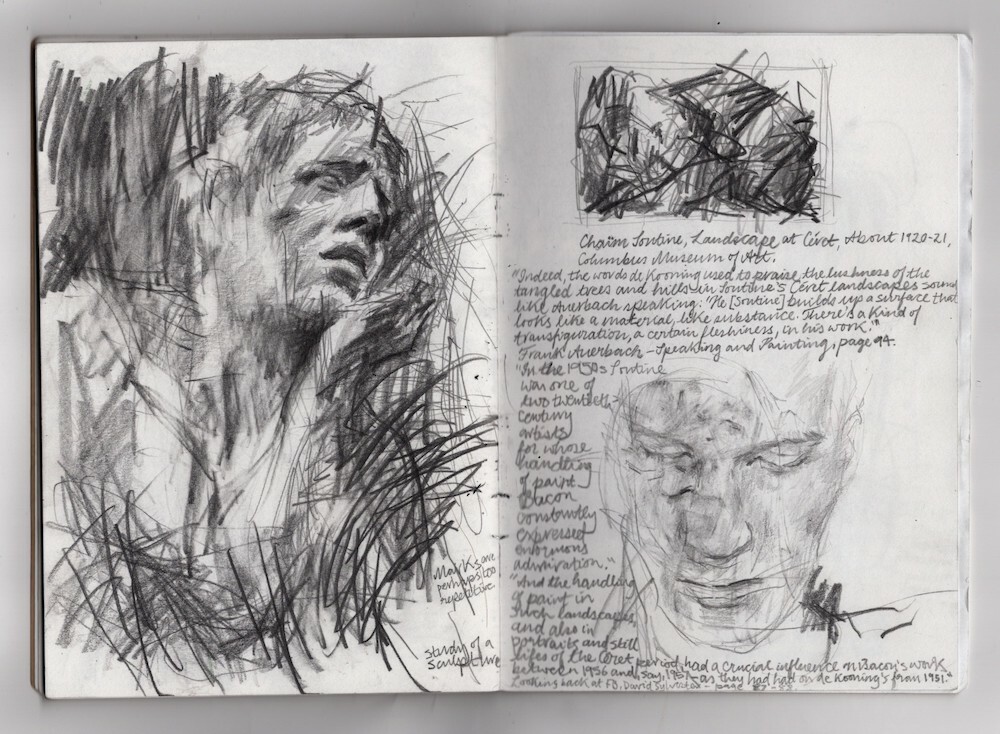 Marks are
perhaps too
repetitive
study of a
sculpture
Chaïm Soutine, Landscape at Céret, About 1920-21,
Columbus Museum of Art.
"Indeed, the words de Kooning used to praise the lushness of the
tangled trees and hills in Soutine's Céret landscapes sound
like Auerbach speaking: 'He [Soutine] builds up a surface that
looks like a material, like substance. There's a kind of
transfiguration, a certain fleshiness, in his work.'"
Frank Auerbach – Speaking and Painting, page 94.
"In the 1950s Soutine
was one of
two twentieth-
century
artists
for whose
handling
of paint
Bacon
constantly
expressed
enormous
admiration."
"And the handling
of paint in
such landscapes,
and also in
portraits and still
lifes of the Céret period, had a crucial influence on Bacon's work
between 1956 and, say, 1957 – as they had had on de Kooning's from 1951."
Looking back at FB, David Sylvester – page